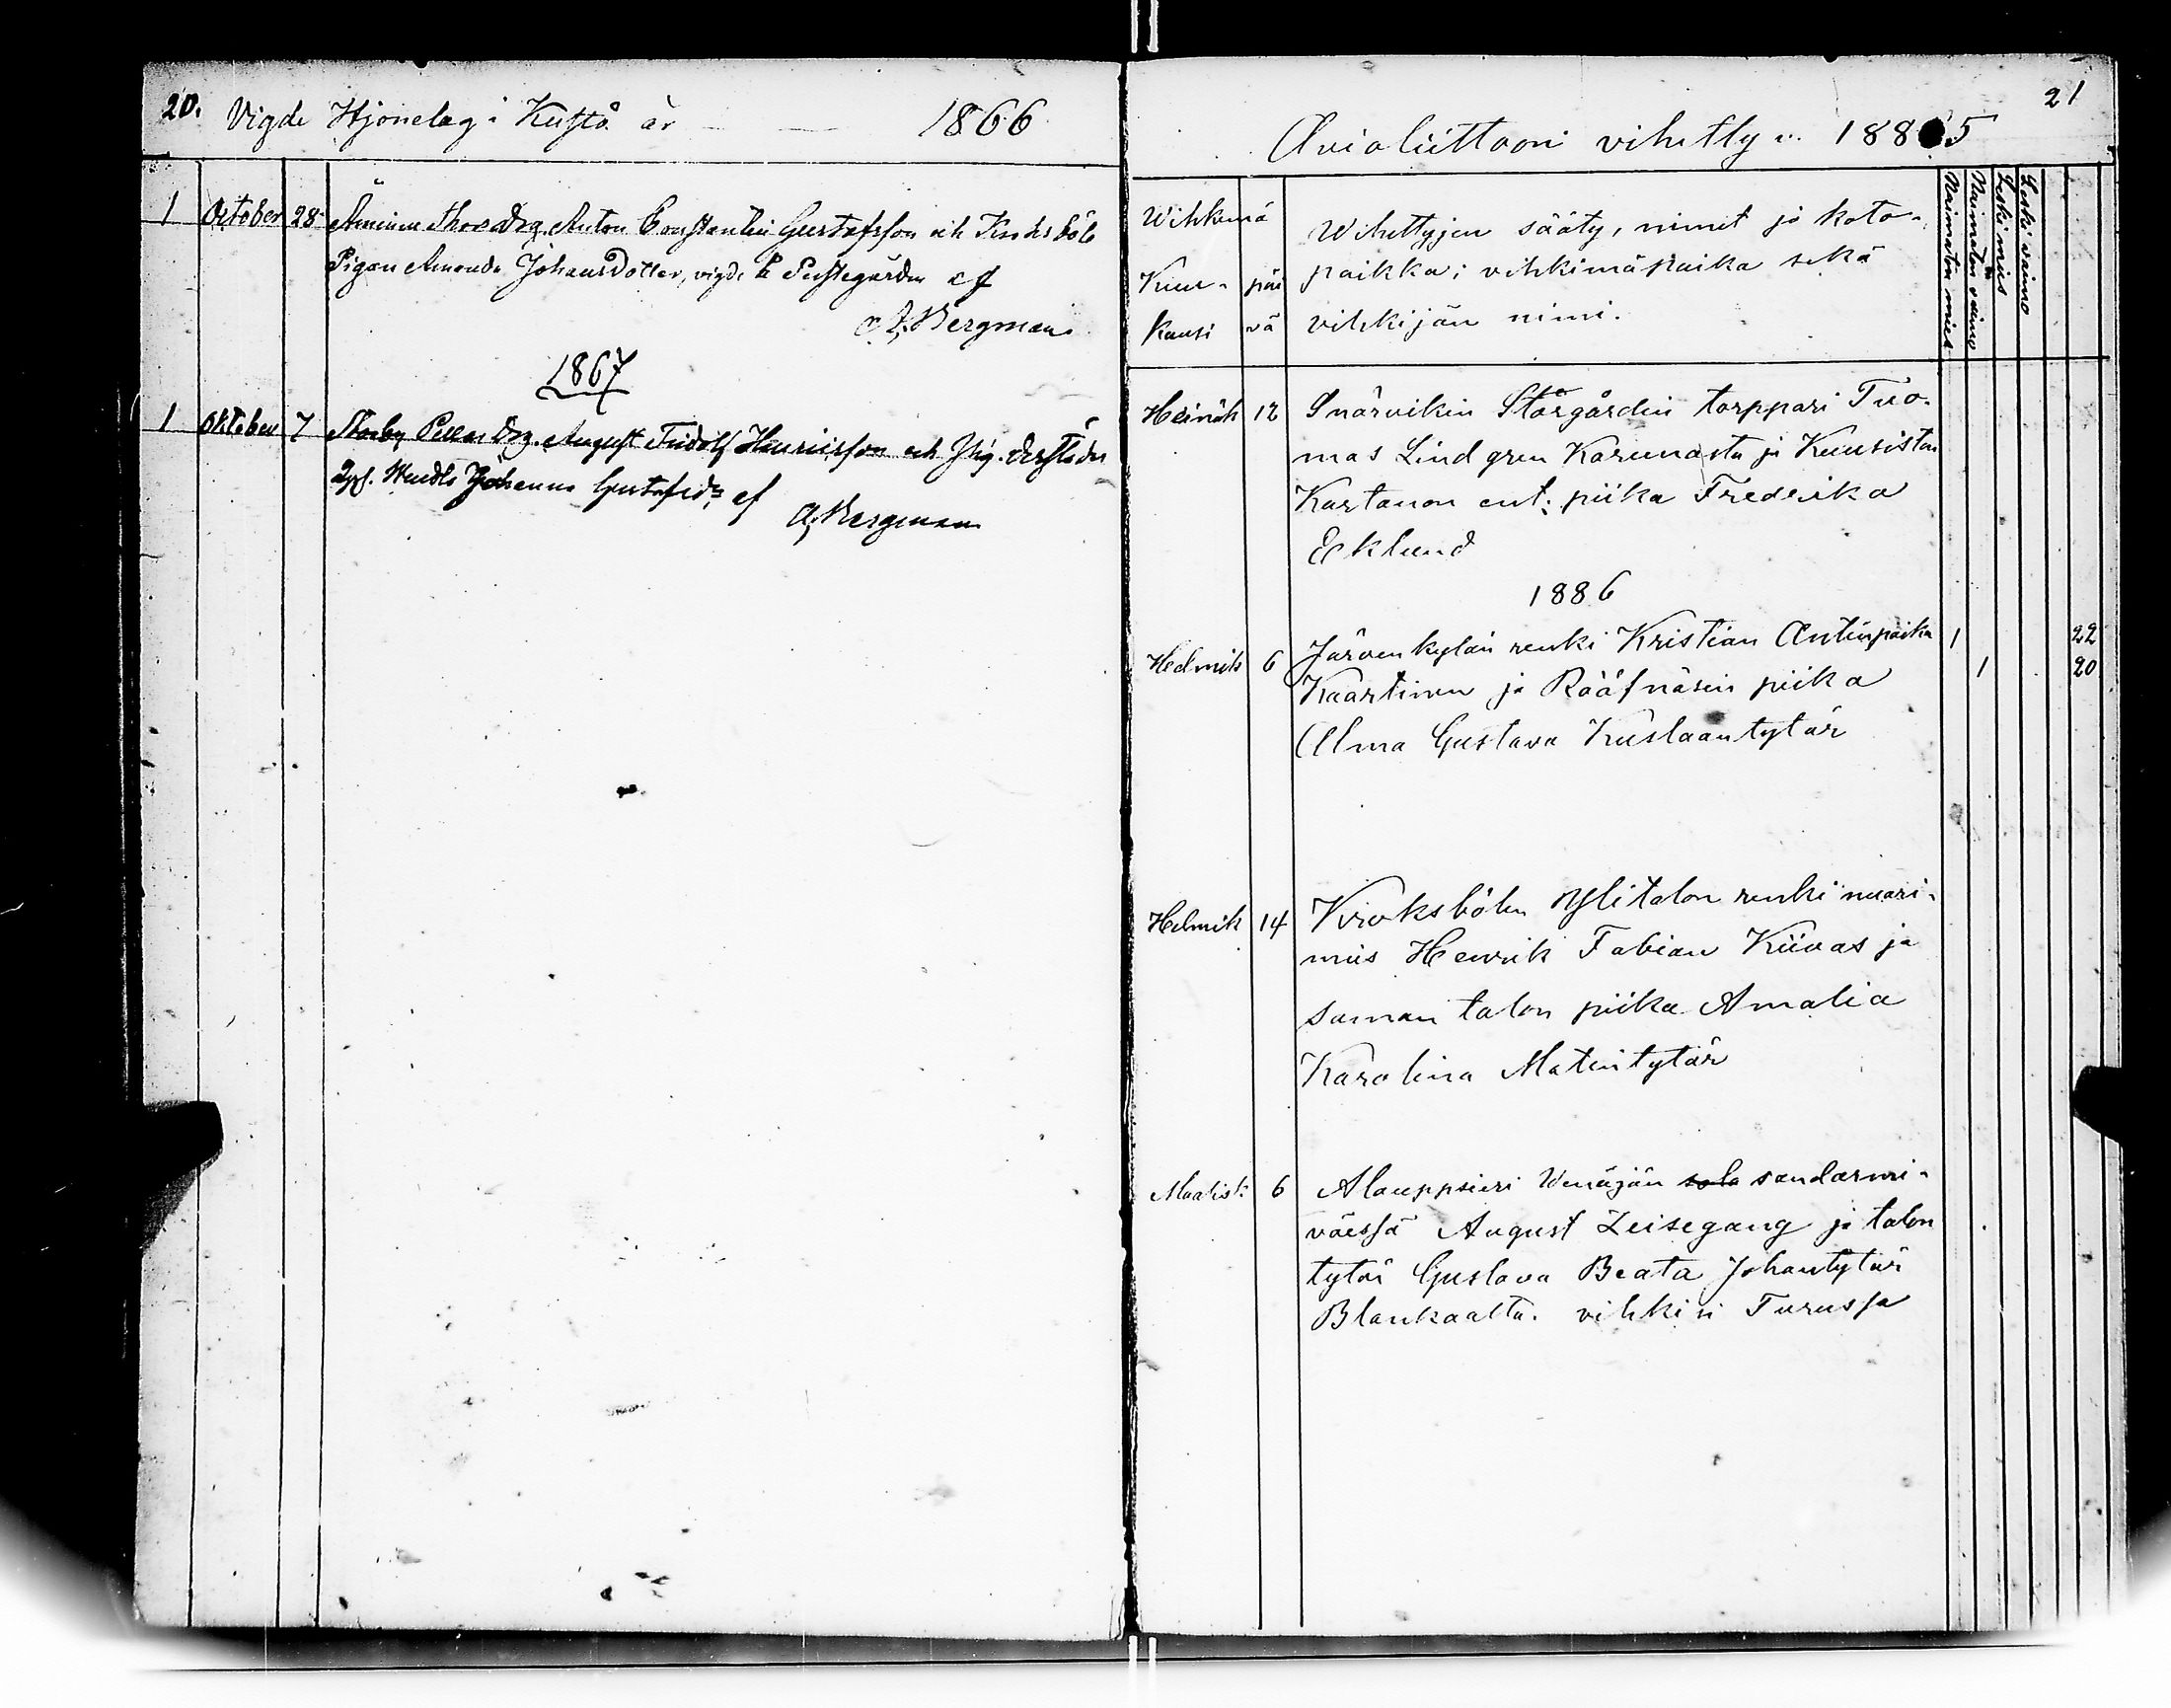 20. Vigde Hjonelag i Kustö år 1866
1 October 28 Änninen Thor Drg. Anton Constantin Gustafsson och Kroksböle
Pigan Amanda Johansdotter, vigde å Prestegården af
A. Bergman
1867
1 Oktober 7 Storby Drg. August Fridolf Henricsson och
Johanna Gustafsdr, af
A. Bergman
21
Avioliittoon vihetty v. 1885
Wihkimä
Kuu-
kausi
päi
vä
Wihettyjen sääty, nimet ja koto-
paikka; vihkimäpaika sekä
vihkijän nimi.
Naimaton mies
Naimaton vaimo
Leski mies
Leski vaimo
Heinäk 12 Snärvikin Storgårdin torppari Tuo-
mas Lindgren Karunasta ja Kuusiston
Kartanon ent. piika Fredrika
Ecklund
1886
Helmik 6 Järvenkylän renki Kristian Antinpoika 1 22
Kaartinen ja Rääfnäsin piika 1 20
Alma Gustava Kustaantytär
Helmik 14 Kroksbölen Ylitalon renki nuori-
mies Henrik Fabian Kiivas ja
saman talon piika Amalia
Karolina Matintytär
Maalisk 6 Alauppsieri Wenäjän sandarmi-
väessä August Zeisegang ja talon
tytär Gustava Beata Johantytär
Blankaalta. vihkisi Turussa